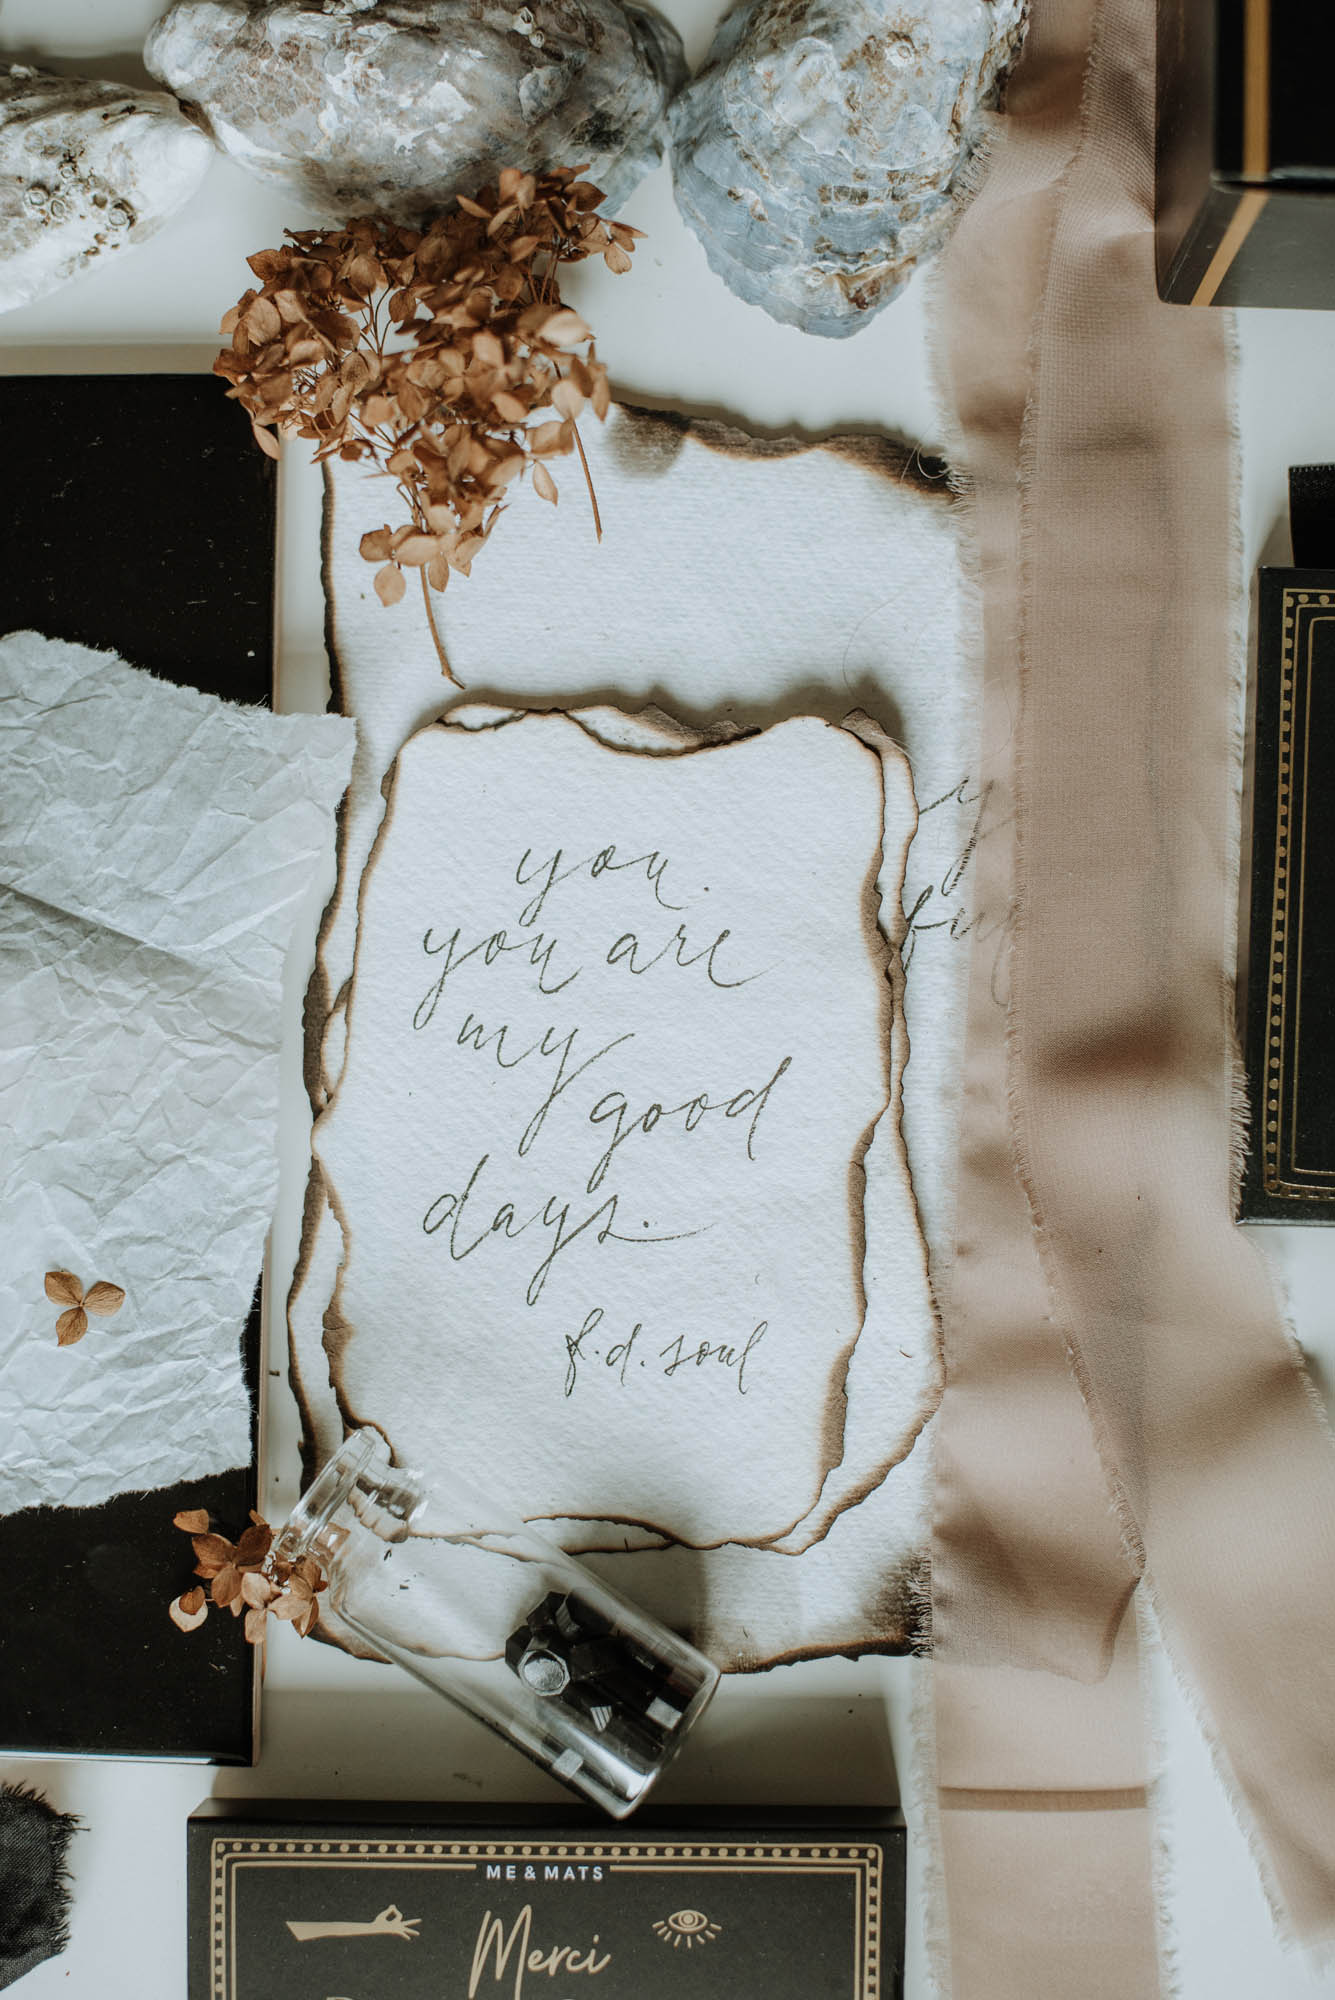 you.
you are
my
good
days.
f.d. soul
ME & MATS
Merci